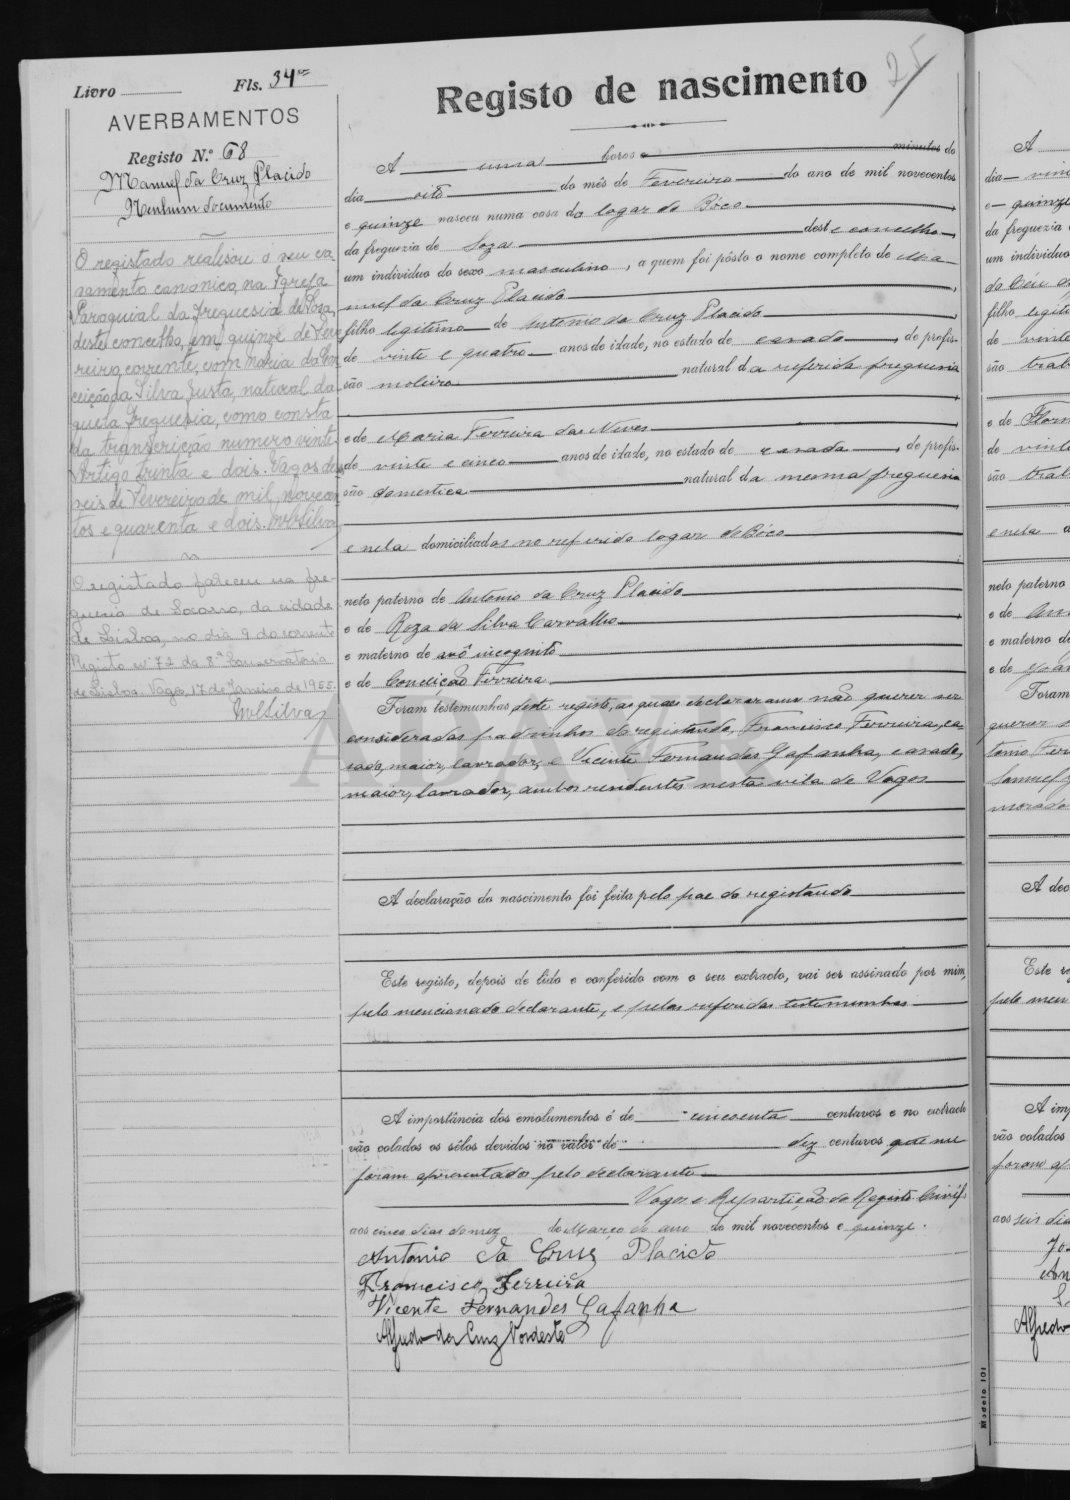 Livro Fls. 34 vº
AVERBAMENTOS
Registo N.º 68
Manuel da Cruz Placido
Nenhum documento
O registado realisou o seu ca-
samento canonico, na Igreja
Paroquial da freguesia de Soza,
deste concelho, em quinze de Feve
reiro corrente, com Maria da Con
ceição da Silva Justa, natural da
quela freguesia, como consta
da transcrição numero vinte
Artigo trinta e dois. Vagos dezas
seis de Fevereiro de mil novecen
tos e quarenta e dois. MSilva
O registado faleceu na fre-
guesia de Socorro, da cidade
de Lisboa, no dia 9 do corrente
Registo nº 72 da 8ª Conservatoria
de Lisboa. Vagos, 17 de Janeiro de 1955.
MSilva
25
Registo de nascimento
A uma horas e minutos do
dia oito do mês de Fevereiro do ano de mil novecentos
e quinze nasceu numa casa do logar de Bôco
da freguezia de Soza deste concelho,
um individuo do sexo masculino, a quem foi pôsto o nome completo de Ma-
nuel da Cruz Placido
filho legitimo de Antonio da Cruz Placido
de vinte e quatro anos de idade, no estado de casado, de profis-
são moleiro natural da referida freguesia
e de Maria Ferreira das Neves
de vinte e cinco anos de idade, no estado de casada, de profis-
são domestica natural da mesma freguesia
e nela domiciliados no referido logar de Bôco
neto paterno de Antonio da Cruz Placido
e de Roza da Silva Carvalho
e materno de avô incognito
e de Conceição Ferreira.
Foram testemunhas deste registo, as quaes declararam não querer ser
consideradas padrinhos do registando, Francisco Ferreira, ca-
sado, maior, lavrador, e Vicente Fernandes Gafanha, casado,
maior, lavrador, ambos residentes nesta vila de Vagos
A declaração do nascimento foi feita pelo pae do registando
Este registo, depois de lido e conferido com o seu extracto, vai ser assinado por mim,
pelo mencionado declarante, e pelas referidas testemunhas
A importância dos emolumentos é de cincoenta centavos e no extracto
vão colados os sêlos devidos no valor de dez centavos que me
foram apresentados pelo declarante
Vagos e Repartição do Registo Civil
aos cinco dias do mez de Março do ano de mil novecentos e quinze.
Antonio da Cruz Placido
Francisco Ferreira
Vicente Fernandes Gafanha
Alfredo da Cruz Nordeste
A
dia vin
e quinze
da freguezia
um individuo
do Céu d
filho legiti
de vinte
são trab
e de Flor
de vinte
são trab
e nela
neto paterno
e de An
e materno d
e de
Foram
querer
tonio Fer
Samuel
morado
A dec
Este re
pelo men
A imp
vão colados
foram ap
aos seis dia
Jo
An
Alfredo
Modelo 101